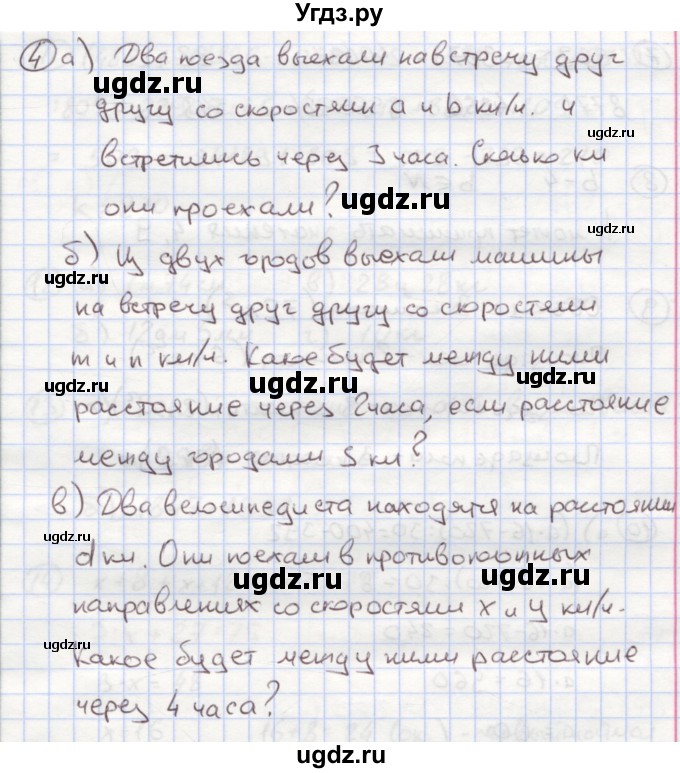 Угдз.ру
4 а) Два поезда выехали навстречу друг
ugdz.ru
другу со скоростями a и b км/ч. и
ugdz.ru
встретились через 3 часа. Сколько км
они проехали?
ugdz.ru
б) Из двух городов выехали машины
ugdz.ru
на встречу друг другу со скоростями
ugdz.ru
m и n км/ч. Какое будет между ними
ugdz.ru
ugdz.ru
расстояние через 2 часа, если расстояние
между городами S км?
ugdz.ru
в) Два велосипедиста находятся на расстоянии
ugdz.ru
d км. Они поехали в противоположных
ugdz.ru
ugdz.ru
направлениях со скоростями x и y км/ч.
ugdz.ru
Какое будет между ними расстояние
ugdz.ru
через 4 часа?
ugdz.ru
ugdz.ru